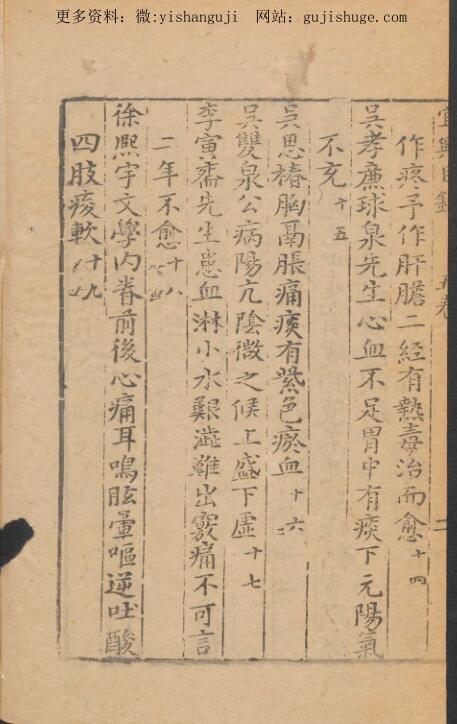 更多资料：微:yishanguji　网站：gujishuge.com
宜興目錄　五卷　二
作疼予作肝膽二經有熱毒治而愈十四
吳孝廉球泉先生心血不足胃中有痰下元陽氣
不充十五
吳思椿胸鬲脹痛痰有紫色瘀血十六
吳雙泉公病陽亢陰微之候上盛下虛十七
李寅齋先生患血淋小水艱澁難出竅痛不可言
二年不愈十八
徐熙宇文學內眷前後心痛耳鳴眩暈嘔逆吐酸
四肢痠軟十九